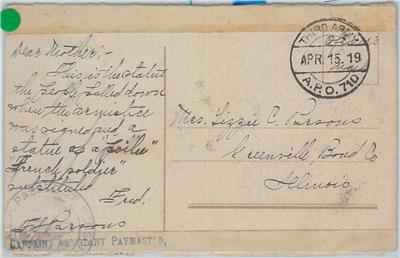 Dear Mother;-
This is the statue
the people pulled down
when the armistice
was signed and a
statue of a "Poilie"
"French soldier"
substituted
Fred.
Parsons
CAPTAIN, ASSISTANT PAYMASTER,
THIRD ARMY
APR. 15. 19
A.P.O. 710
Mrs. Lizzie C. Parsons
Greenville, Bond Co
Illinois